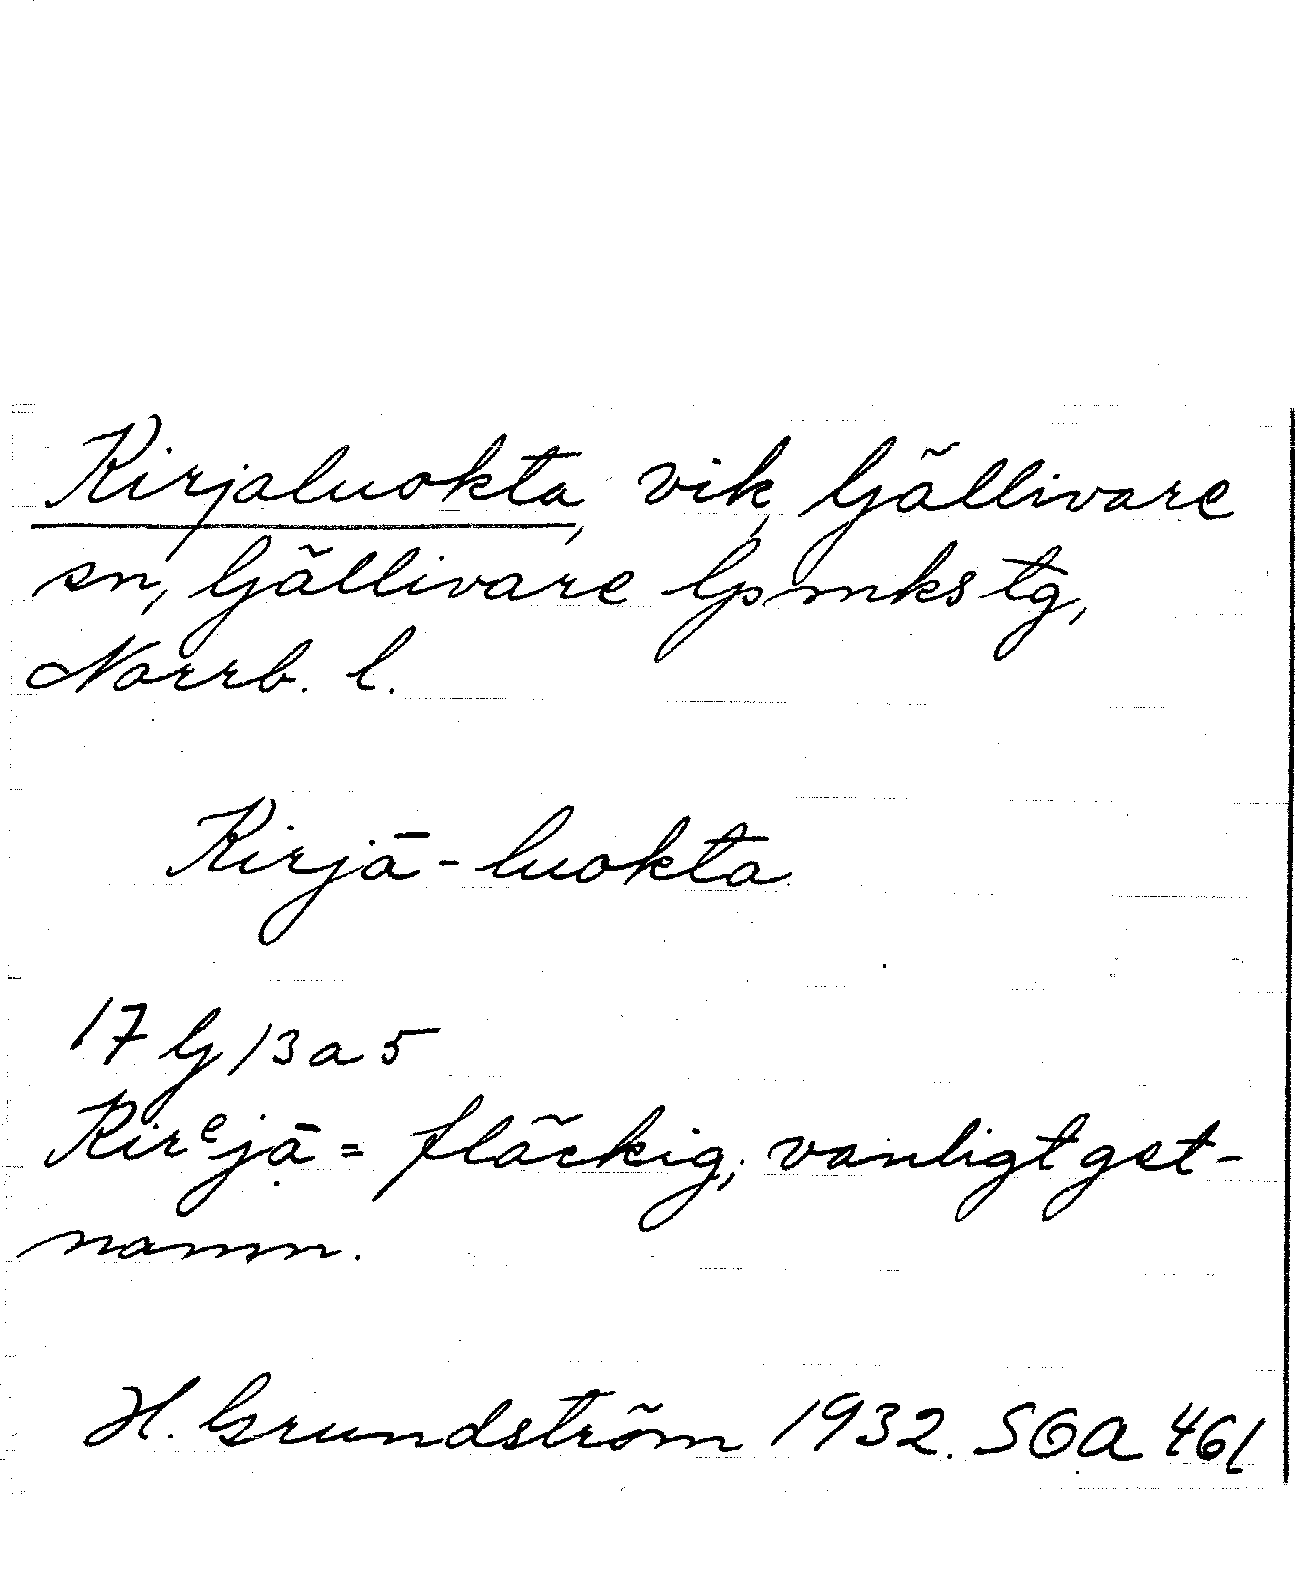 Kirjaluokta, vik, Gjällivare
sn, Gjällivare lpmks tg,
Norrb. l.
Kirjā-luokta
17 G 13 a 5
Kirᵉjạ̄ = fläckig; vanligt get-
namn.
H. Grundström 1932. SOA 461